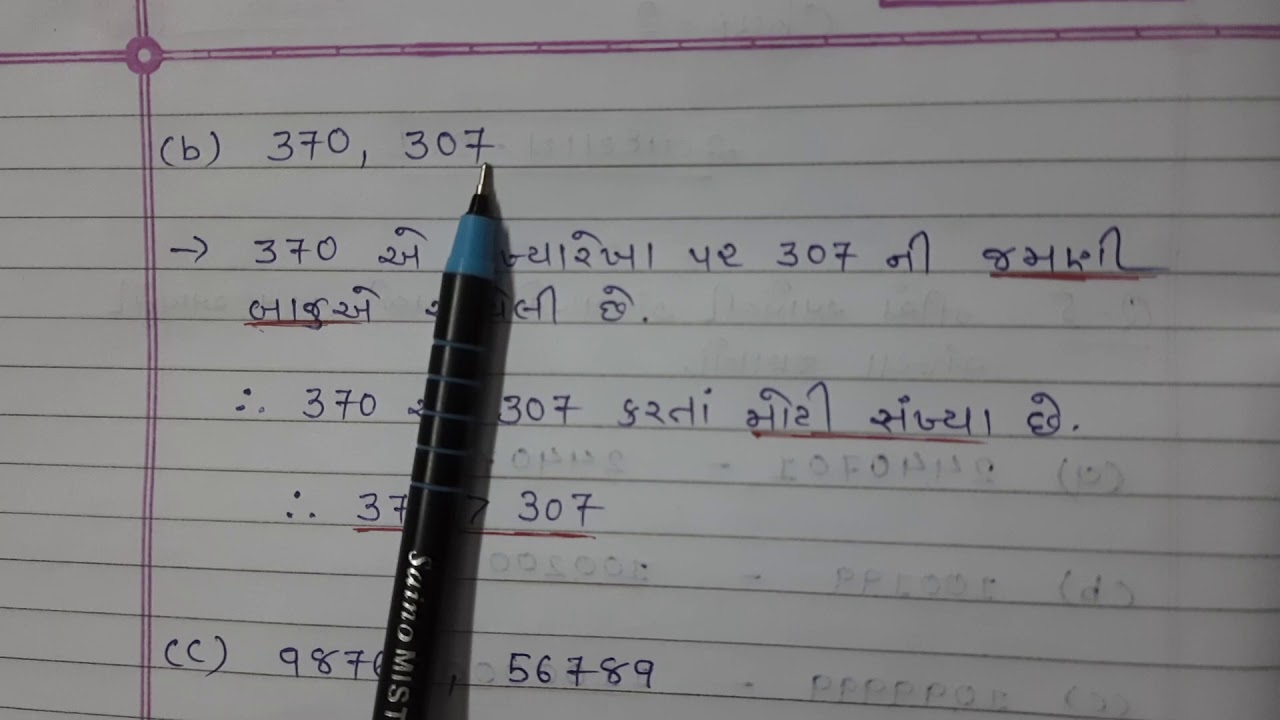 (b) 370, 307
→ 370 એ પર 307 ની જમણી
બાજુએ છે.
∴ 370 307 કરતાં મોટી સંખ્યા છે.
∴ > 307
(c) 56789
Saino MIST